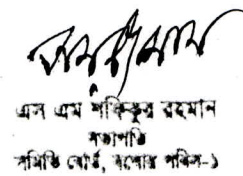 এস এম শাকিকুর রহমান
সভাপতি
সমিতি বোর্ড, যশোর পবিস-১